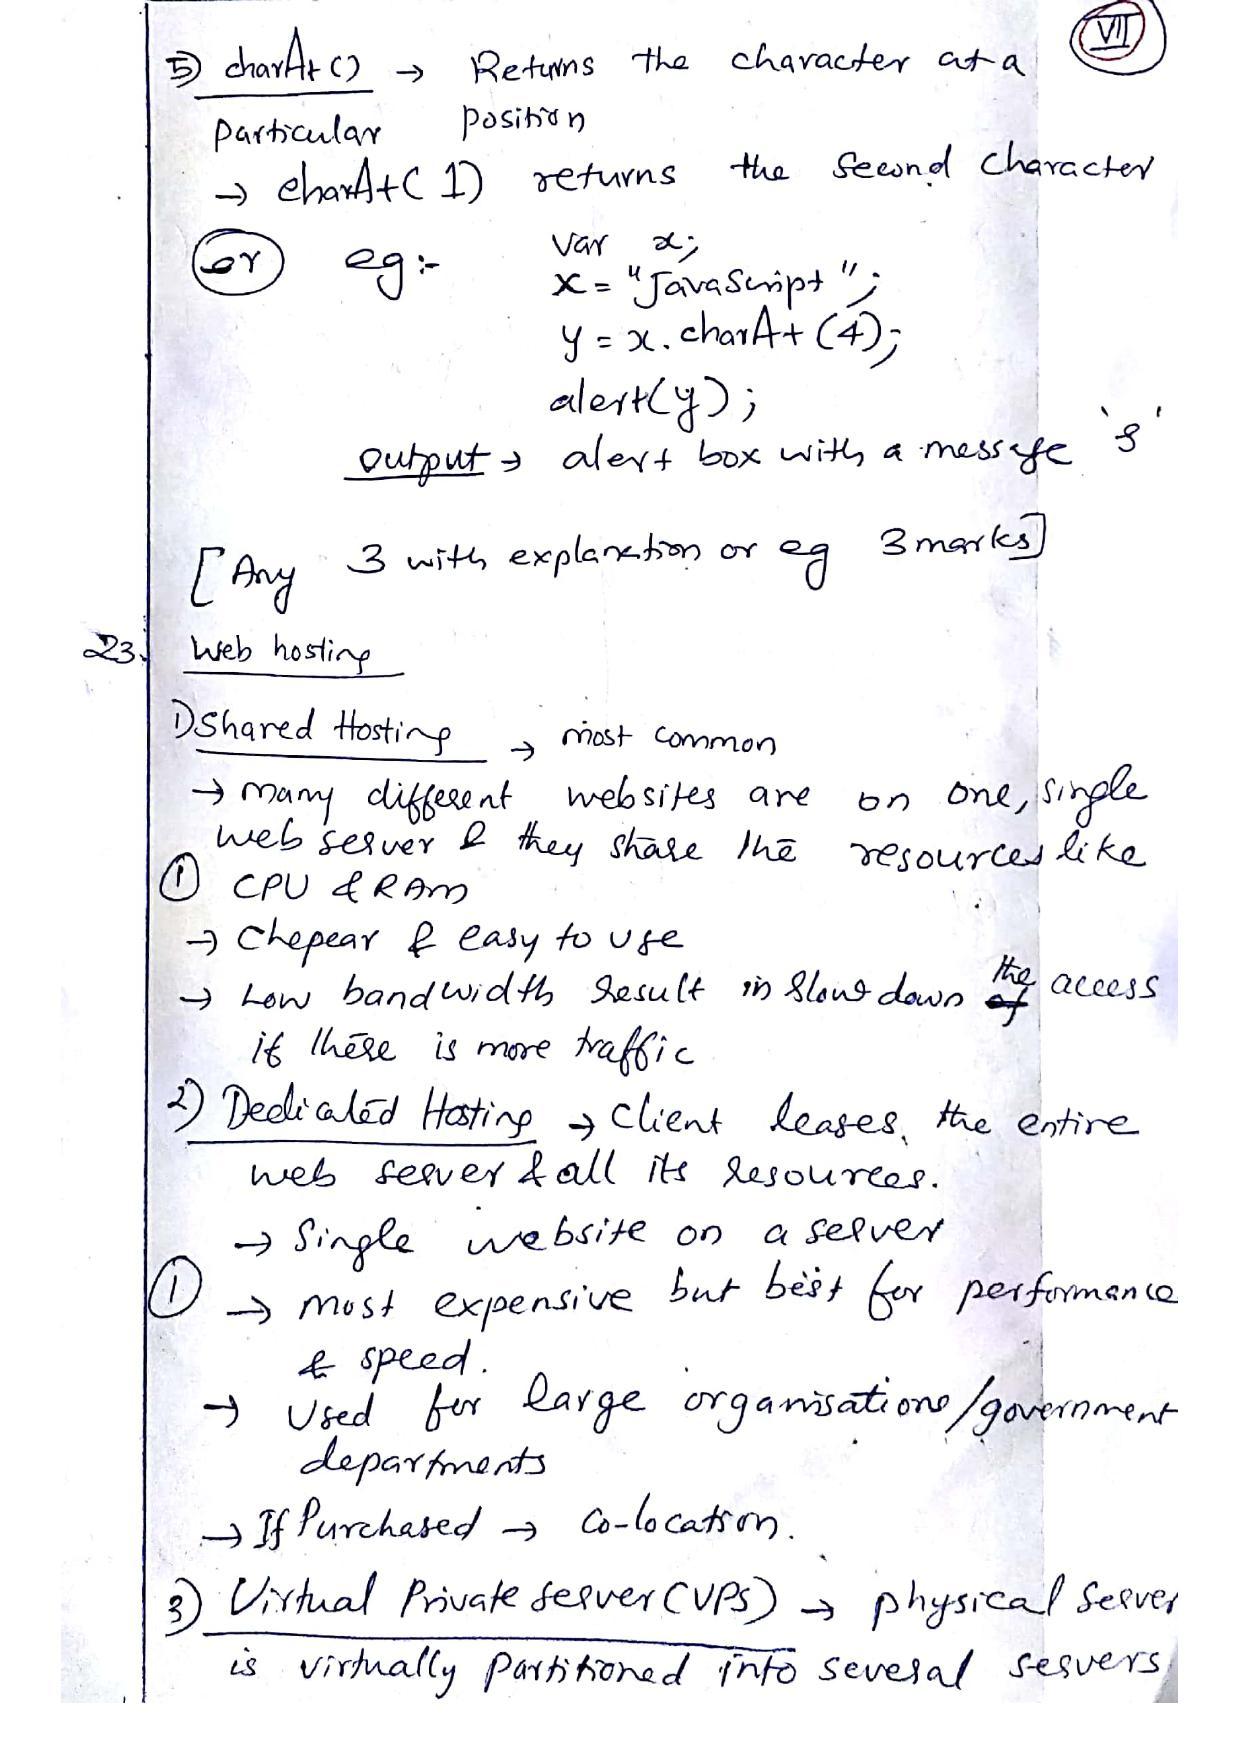 VII
5) charAt() → Returns the character at a
particular position
→ charAt(1) returns the second character
or eg:- var x;
x = "JavaScript";
y = x.charAt(4);
alert(y);
output → alert box with a message 's'
[Any 3 with explanation or eg 3 marks]
23. Web hosting
1) Shared Hosting → most common
→ many different websites are on one, single
web server & they share the resources like
① CPU & RAM
→ Chepear & easy to use
→ Low bandwidth result in slow down the access
if there is more traffic
2) Dedicated Hosting → Client leases, the entire
web server & all its resources.
→ Single website on a server
① → most expensive but best for performance
& speed.
→ Used for large organisations/government
departments
→ If Purchased → Co-location.
3) Virtual Private Server (VPS) → physical server
is virtually partitioned into several servers